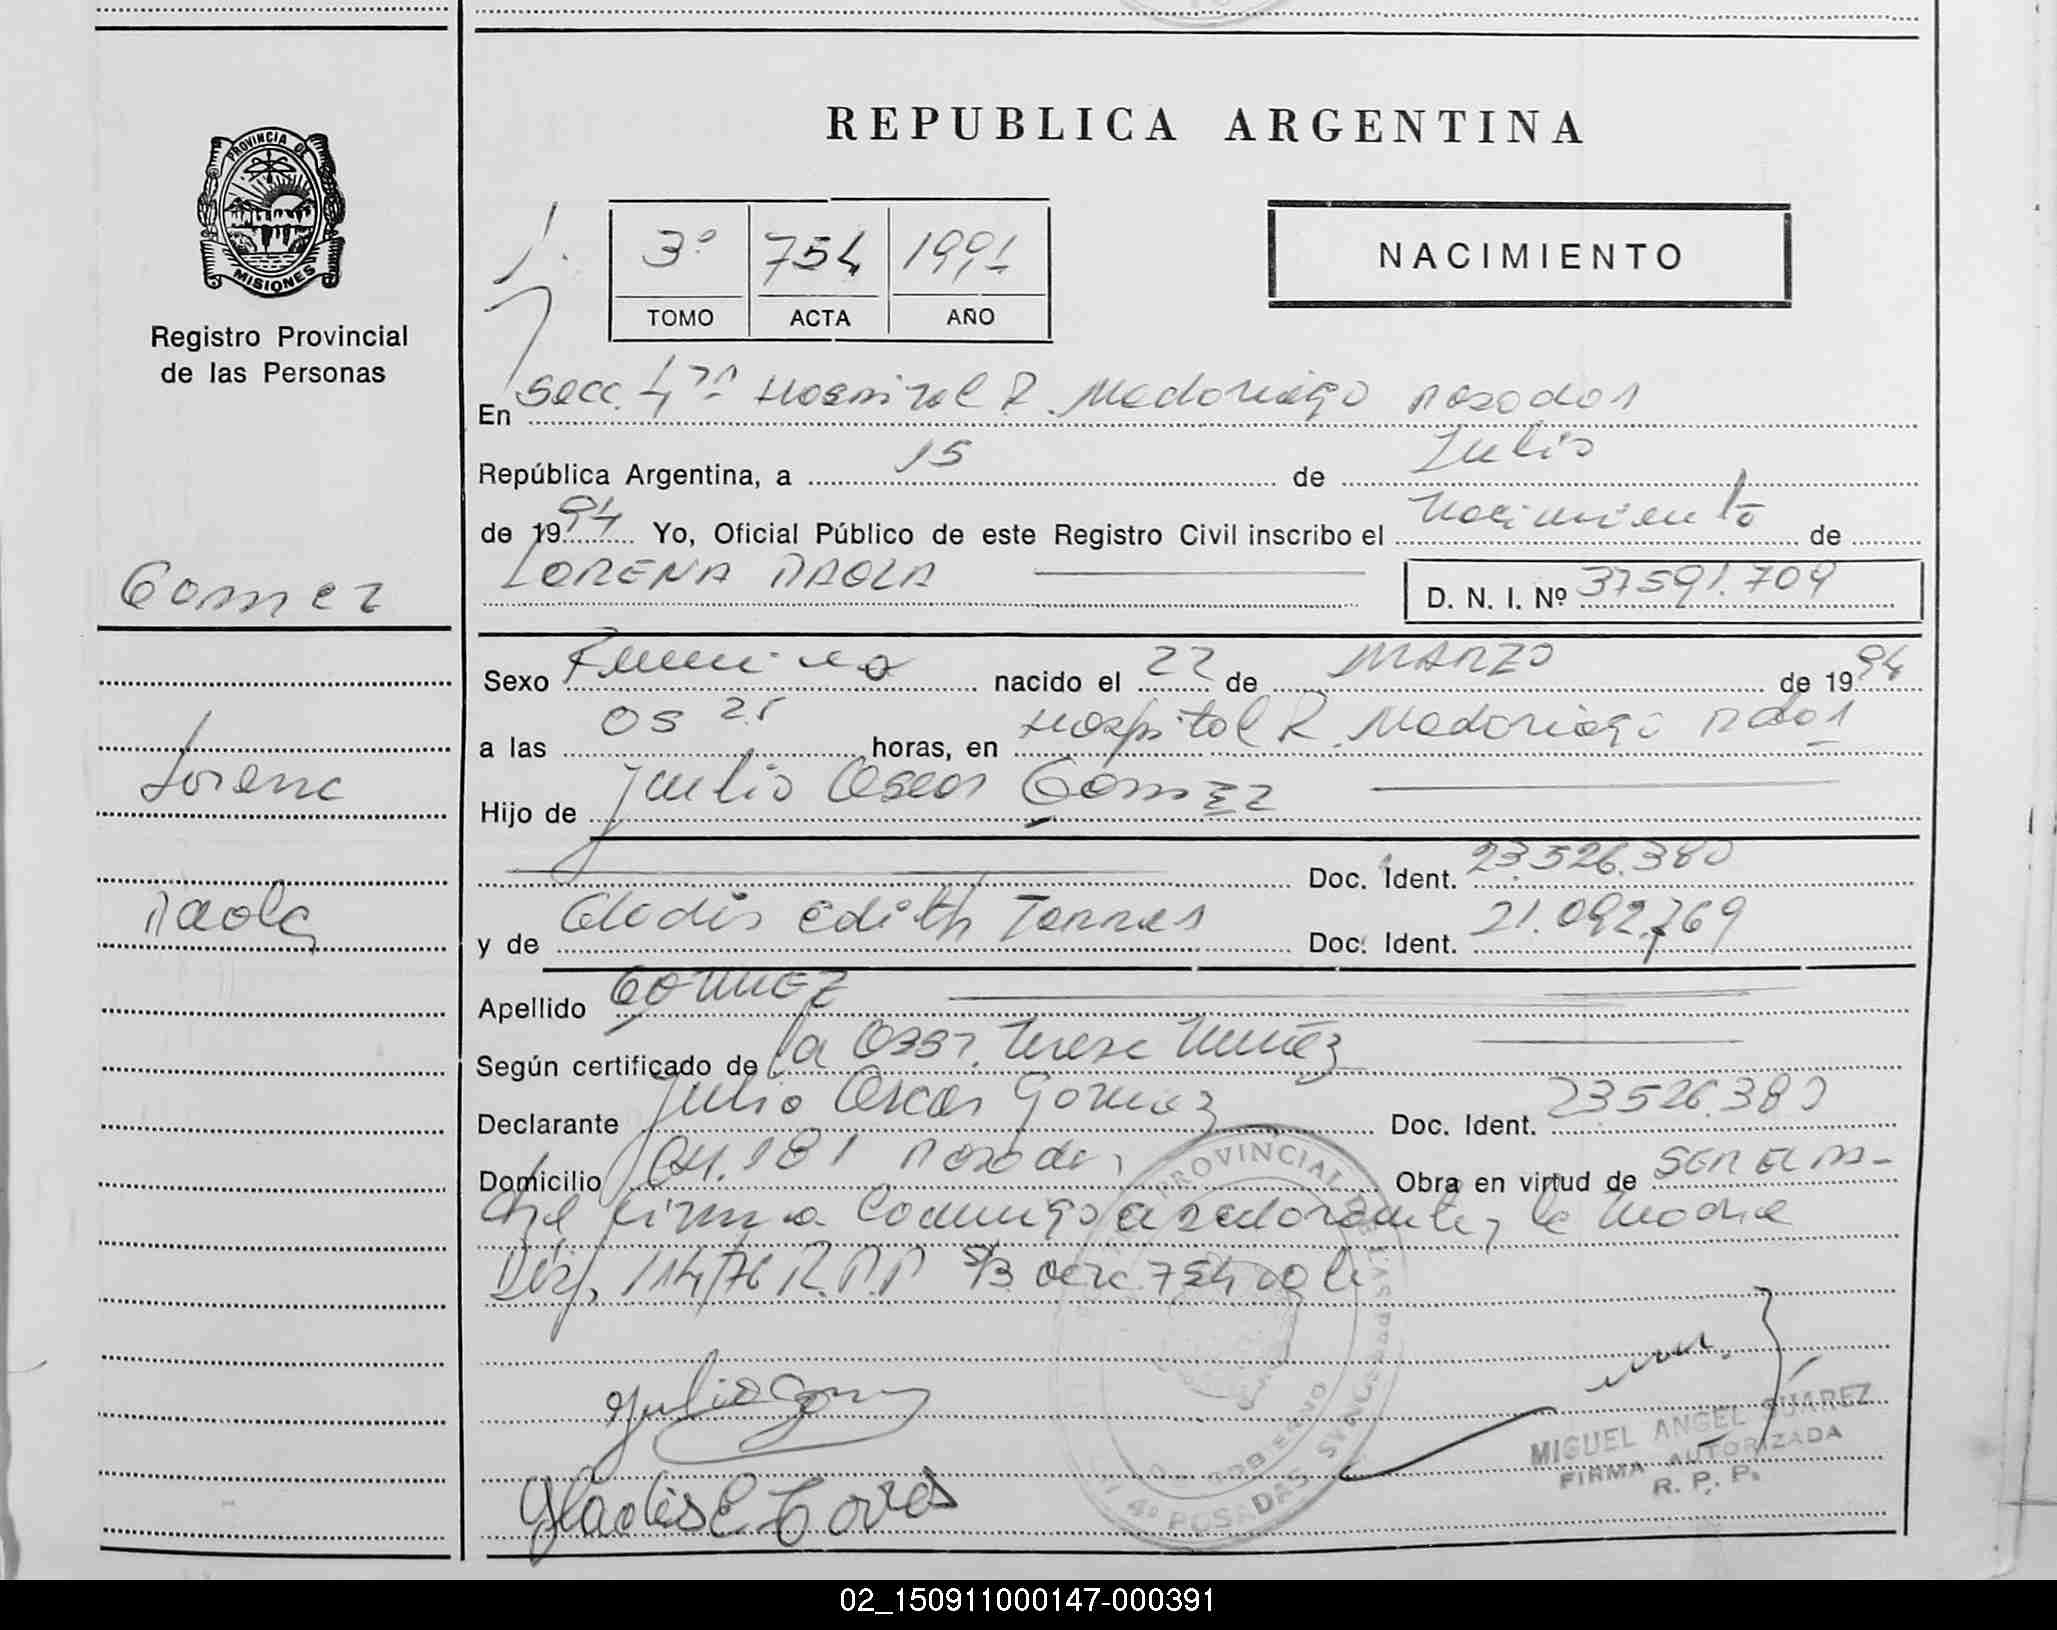 REPUBLICA ARGENTINA
PROVINCIA DE
MISIONES
Registro Provincial
de las Personas
3º 754 1991
TOMO ACTA AÑO
NACIMIENTO
En Secc. 4ta Hospital R. Madariaga Posadas
República Argentina, a 15 de Julio
de 1994 Yo, Oficial Público de este Registro Civil inscribo el Nacimiento de
LORENA PAOLA D. N. I. Nº 37591.709
Gomez
Sexo Femenino nacido el 22 de MARZO de 1994
a las 05 25 horas, en Hospital R. Madariaga Pdas
Lorena
Hijo de Julio Oscar Gómez
Doc. Ident. 23.526.380
Paola
y de Gladis Edith Torres Doc. Ident. 21.092.769
Apellido GOMEZ
Según certificado de la Teresa Nuñez
Declarante Julio Oscar Gomez Doc. Ident. 23526.380
Domicilio 181 Posadas Obra en virtud de SER EL PA-
dre firma Conmigo el declarante y la madre
Disp. 114/76 R.P.P S/B 754
Julio Gomez
Gladis E Torres
PROVINCIAL
GOBIERNO
4º POSADAS
MIGUEL ANGEL SUAREZ
FIRMA AUTORIZADA
R. P. P.
02_150911000147-000391